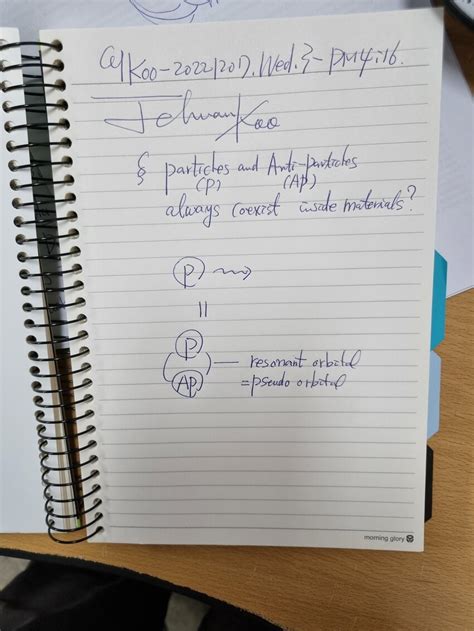 Koo-2022/20 Wed. PM4:16.
Jehwan Koo
§ particles and Anti-particles
(P) (AP)
always coexist inside materials?
P
=
P
AP
resonant orbital
=pseudo orbital
morning glory